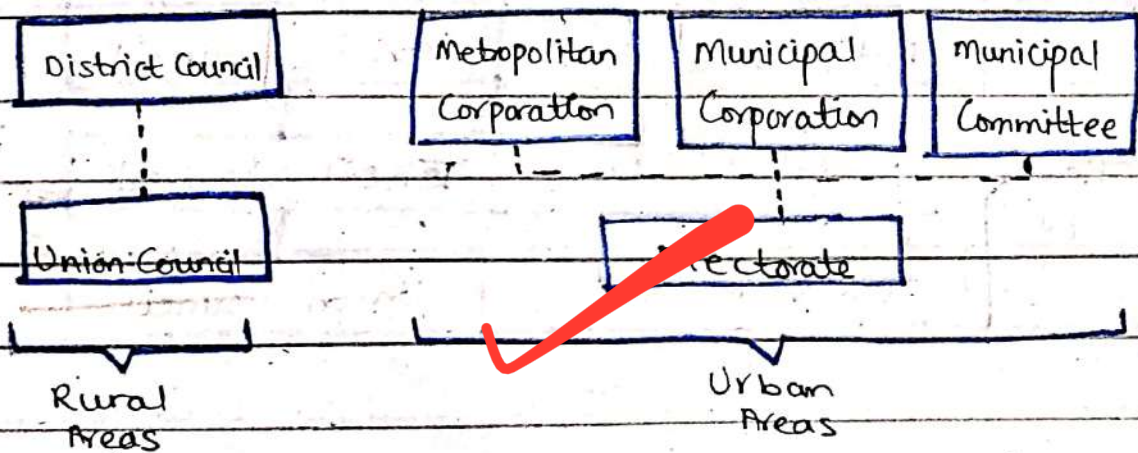 District Council
Metropolitan
Corporation
Municipal
Corporation
Municipal
Committee
Union Council
Rural
Areas
Urban
Areas